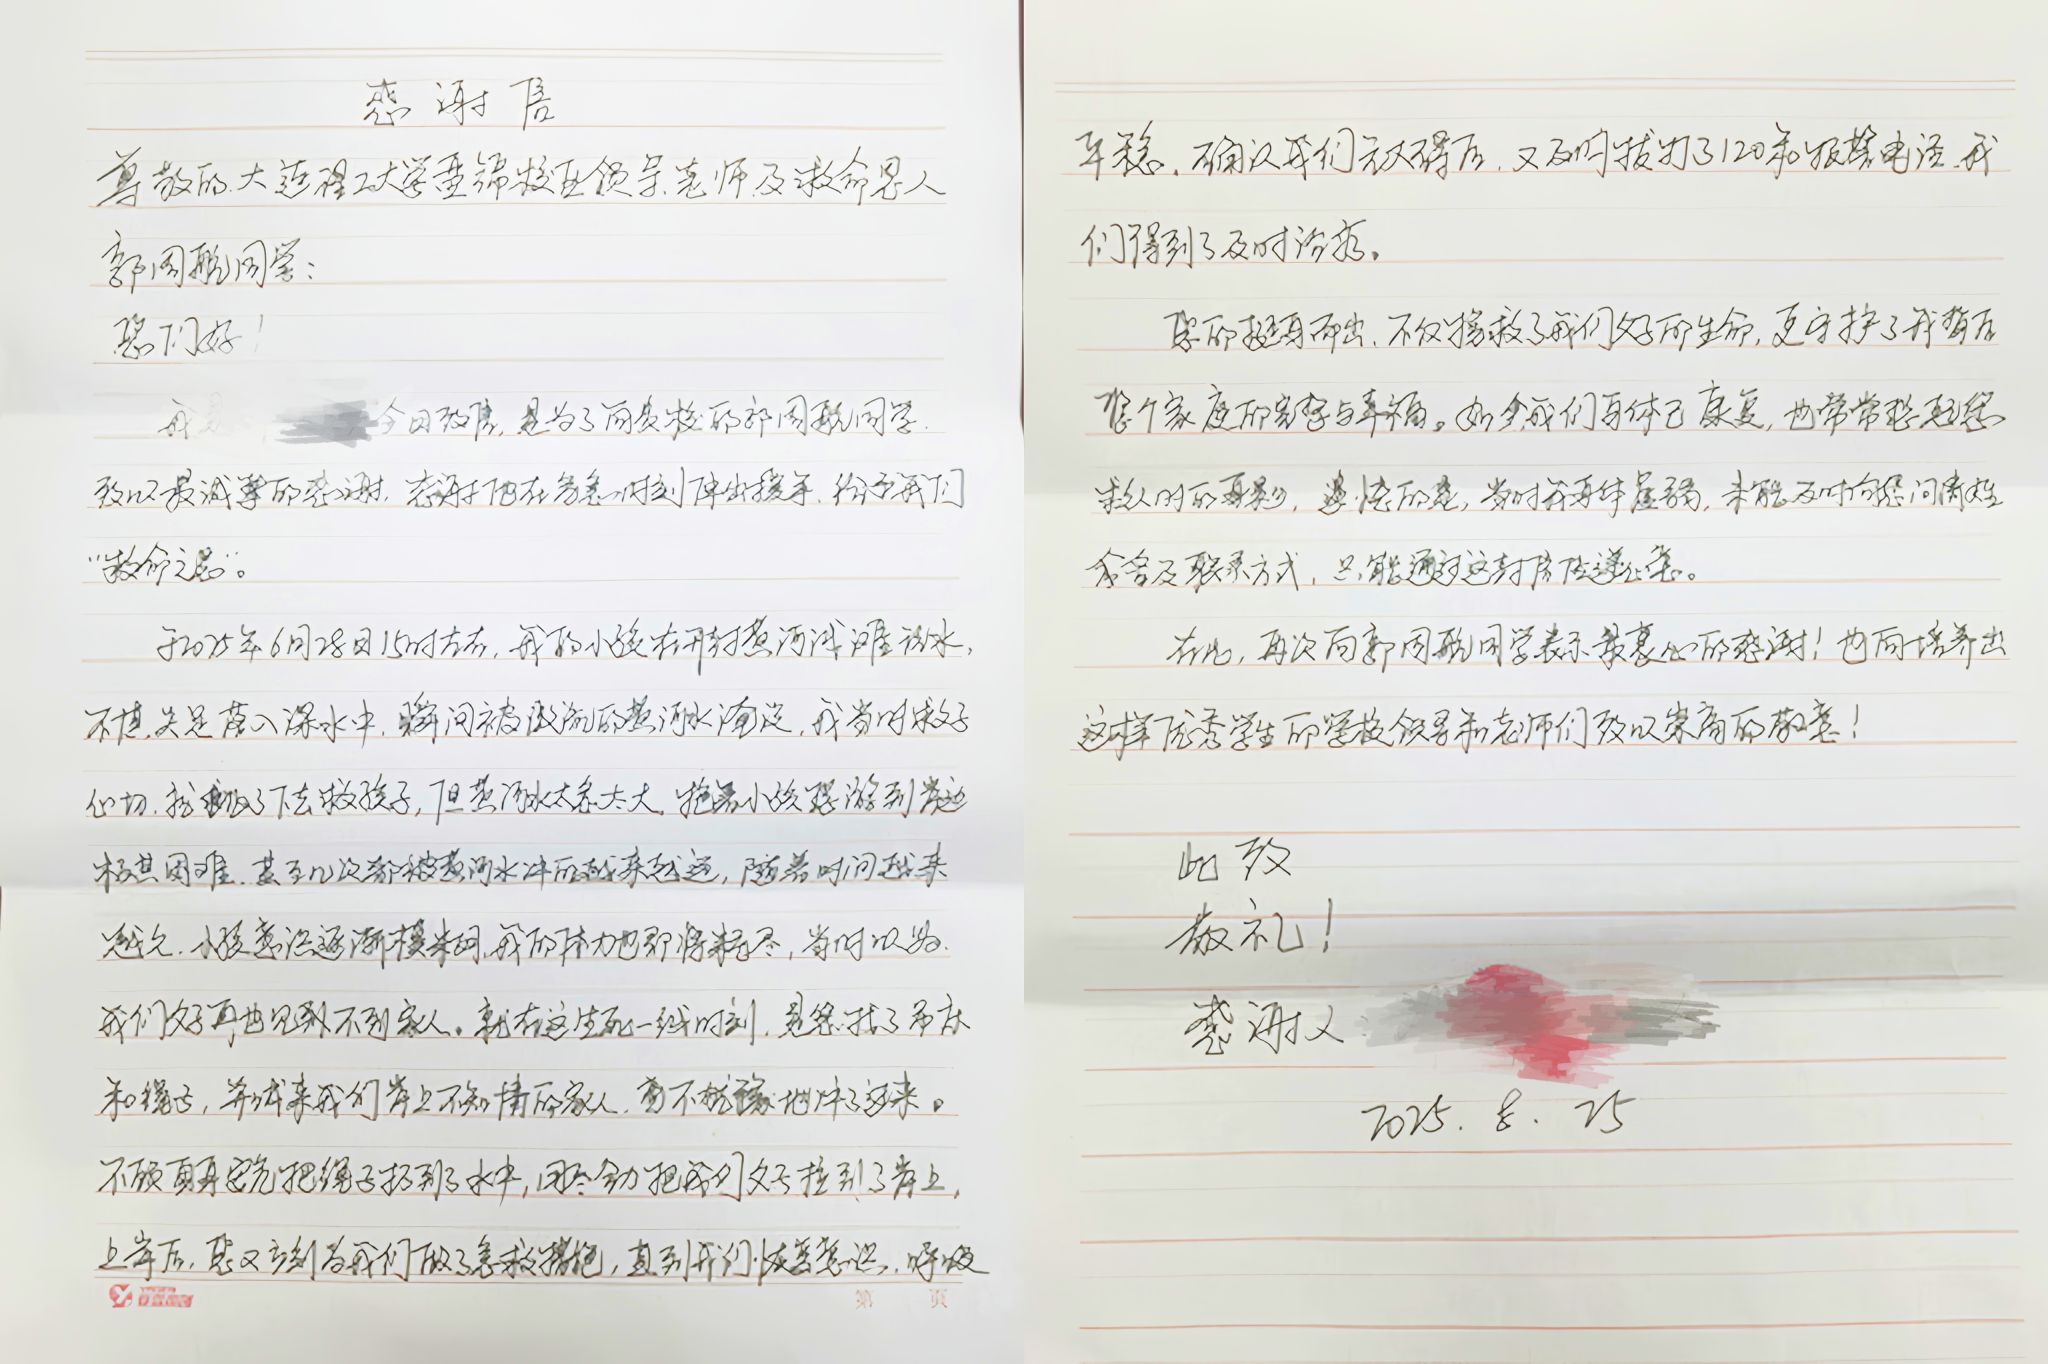 感谢信
尊敬的大连理工大学盘锦校区领导、老师及救命恩人
郭同航同学：
您们好！
我是 今日致信，是为了向贵校的郭同航同学，
致以最诚挚的感谢，感谢他在危急时刻伸出援手，给予我们
“救命之恩”。
于2025年6月28日15时左右，我的小孩在开封黄河浅滩玩水，
不慎失足落入深水中，瞬间被湍流的黄河水淹没，我当时救子
心切，就跳了下去救孩子，但黄河水太急太大，拖着小孩想游到岸边
极其困难，甚至几次都被黄河水冲的越来越远，随着时间越来
越久，小孩意识逐渐模糊，我的体力也即将耗尽，当时以为
我们父子再也见不到家人。就在这生死一线时刻，是您找了吊床
和绳子，并找来我们岸上不知情的家人，毫不犹豫地冲了过来。
不顾自身安危把绳子扔到了水中，用尽全力把我们父子拉到了岸上，
上岸后，您又立刻为我们做了急救措施，直到我们恢复意识、呼吸
平稳，确认我们无大碍后，又及时拨打了120和报警电话，我
们得到了及时治疗。
您的挺身而出，不仅拯救了我们父子的生命，更守护了我背后
整个家庭的完整与幸福。如今我们身体已康复，也常常想起您
救人时的身影，遗憾的是，当时我身体虚弱，未能及时向您问清姓
名及联系方式，只能通过这封信传递心意。
在此，再次向郭同航同学表示最衷心的感谢！也向培养出
这样优秀学生的学校领导和老师们致以崇高的敬意！
此致
敬礼！
感谢人
2025.8.25
第 页